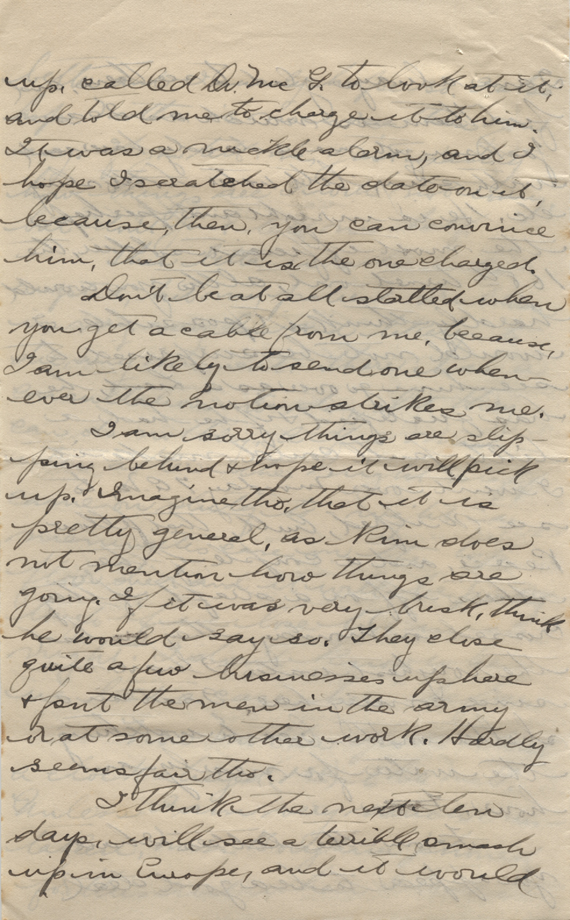 up, called Dr. Mc G. to look at it,
and told me to charge it to him.
It was a nickle alarm, and I
hope I scratched the date on it,
because, then, you can convince
him, that it is the one charged.
Don't be at all startled when
you get a cable from me, because,
I am likely to send one when-
ever the notion strikes me.
I am sorry things are slip-
ping behind & hope it will pick
up. Imagine tho, that it is
pretty general, as Rim does
not mention how things are
going. If it was very brisk, think
he would say so. They close
quite a few businesses up here
& put the men in the army
or at some other work. Hardly
seems fair tho.
I think the next ten
days, will see a terrible smash
up in Europe, and it would